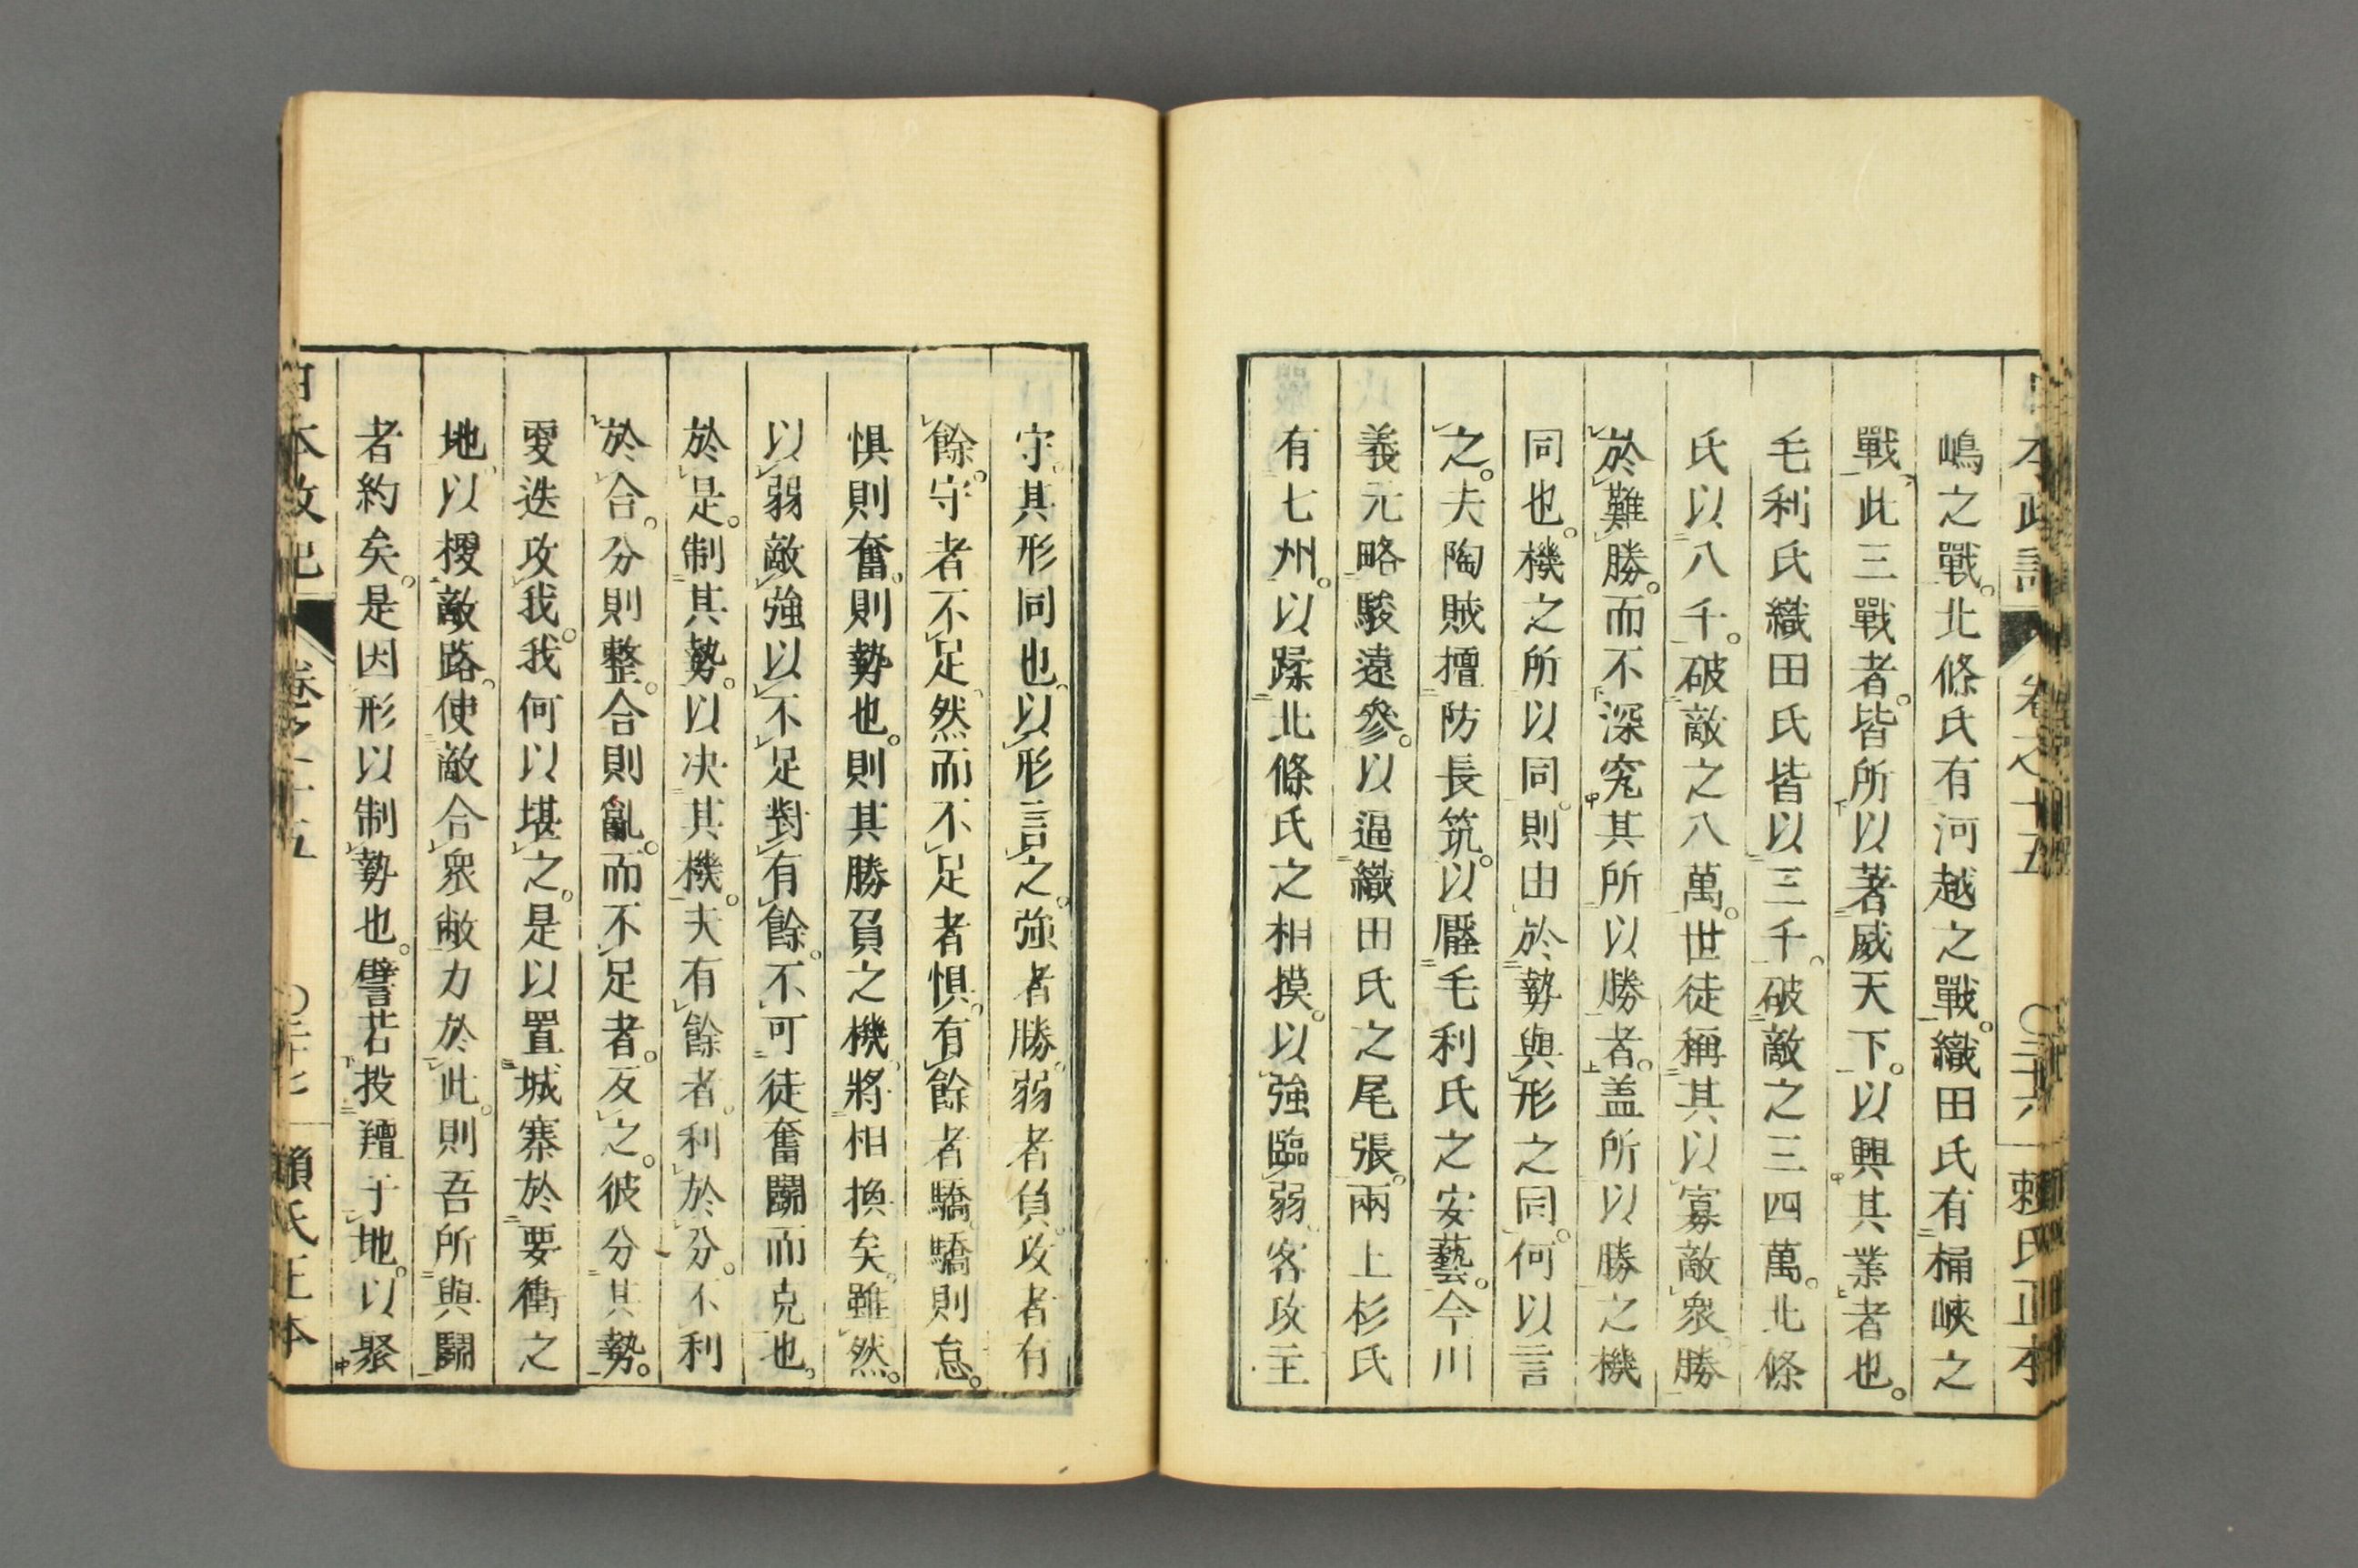 本政記 卷之十五 〇三十六 賴氏正本
嶋之戰。北條氏有河越之戰。織田氏有桶峽之
戰、此三戰者。皆所以著威天下。以興其業者也。
毛利氏織田氏皆以三千。破敵之三四萬。北條
氏以八千。破敵之八萬。世徒稱其以寡敵衆。勝
於難勝。而不深究其所以勝者。盖所以勝之機
同也。機之所以同。則由於勢與形之同。何以言
之。夫陶賊擅防長筑。以壓毛利氏之安藝。今川
義元略駿遠參。以逼織田氏之尾張。兩上杉氏
有七州。以蹂北條氏之相摸。以強臨弱。客攻主
守。其形同也。以形言之。強者勝。弱者負。攻者有
餘。守者不足。然而不足者惧。有餘者驕。驕則怠。
惧則奮。則勢也。則其勝負之機。將相換矣。雖然。
以弱敵強以不足對有餘。不可徒奮鬪而克也。
於是。制其勢。以决其機。夫有餘者。利於分。不利
於合。分則整。合則亂。而不足者。反之。彼分其勢。
更迭攻我。我何以堪之。是以置城寨於要衝之
地。以擾敵路。使敵合衆敝力於此。則吾所與鬪
者約矣。是因形以制勢也。譬若投羶于地。以聚
日本政記 卷之十五 〇三十七 賴氏正本